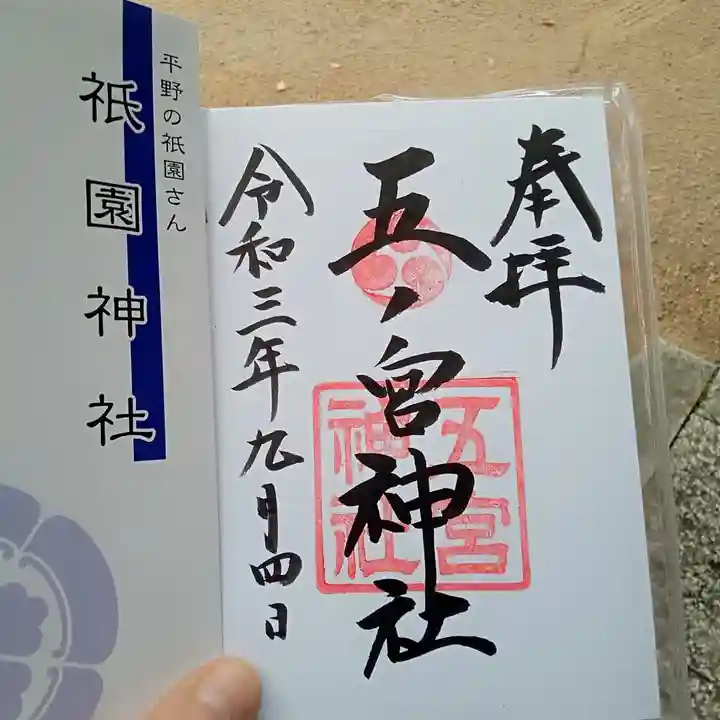 奉拝
五ノ宮神社
五宮
神社
令和三年九月四日
平野の祇園さん
祇園神社